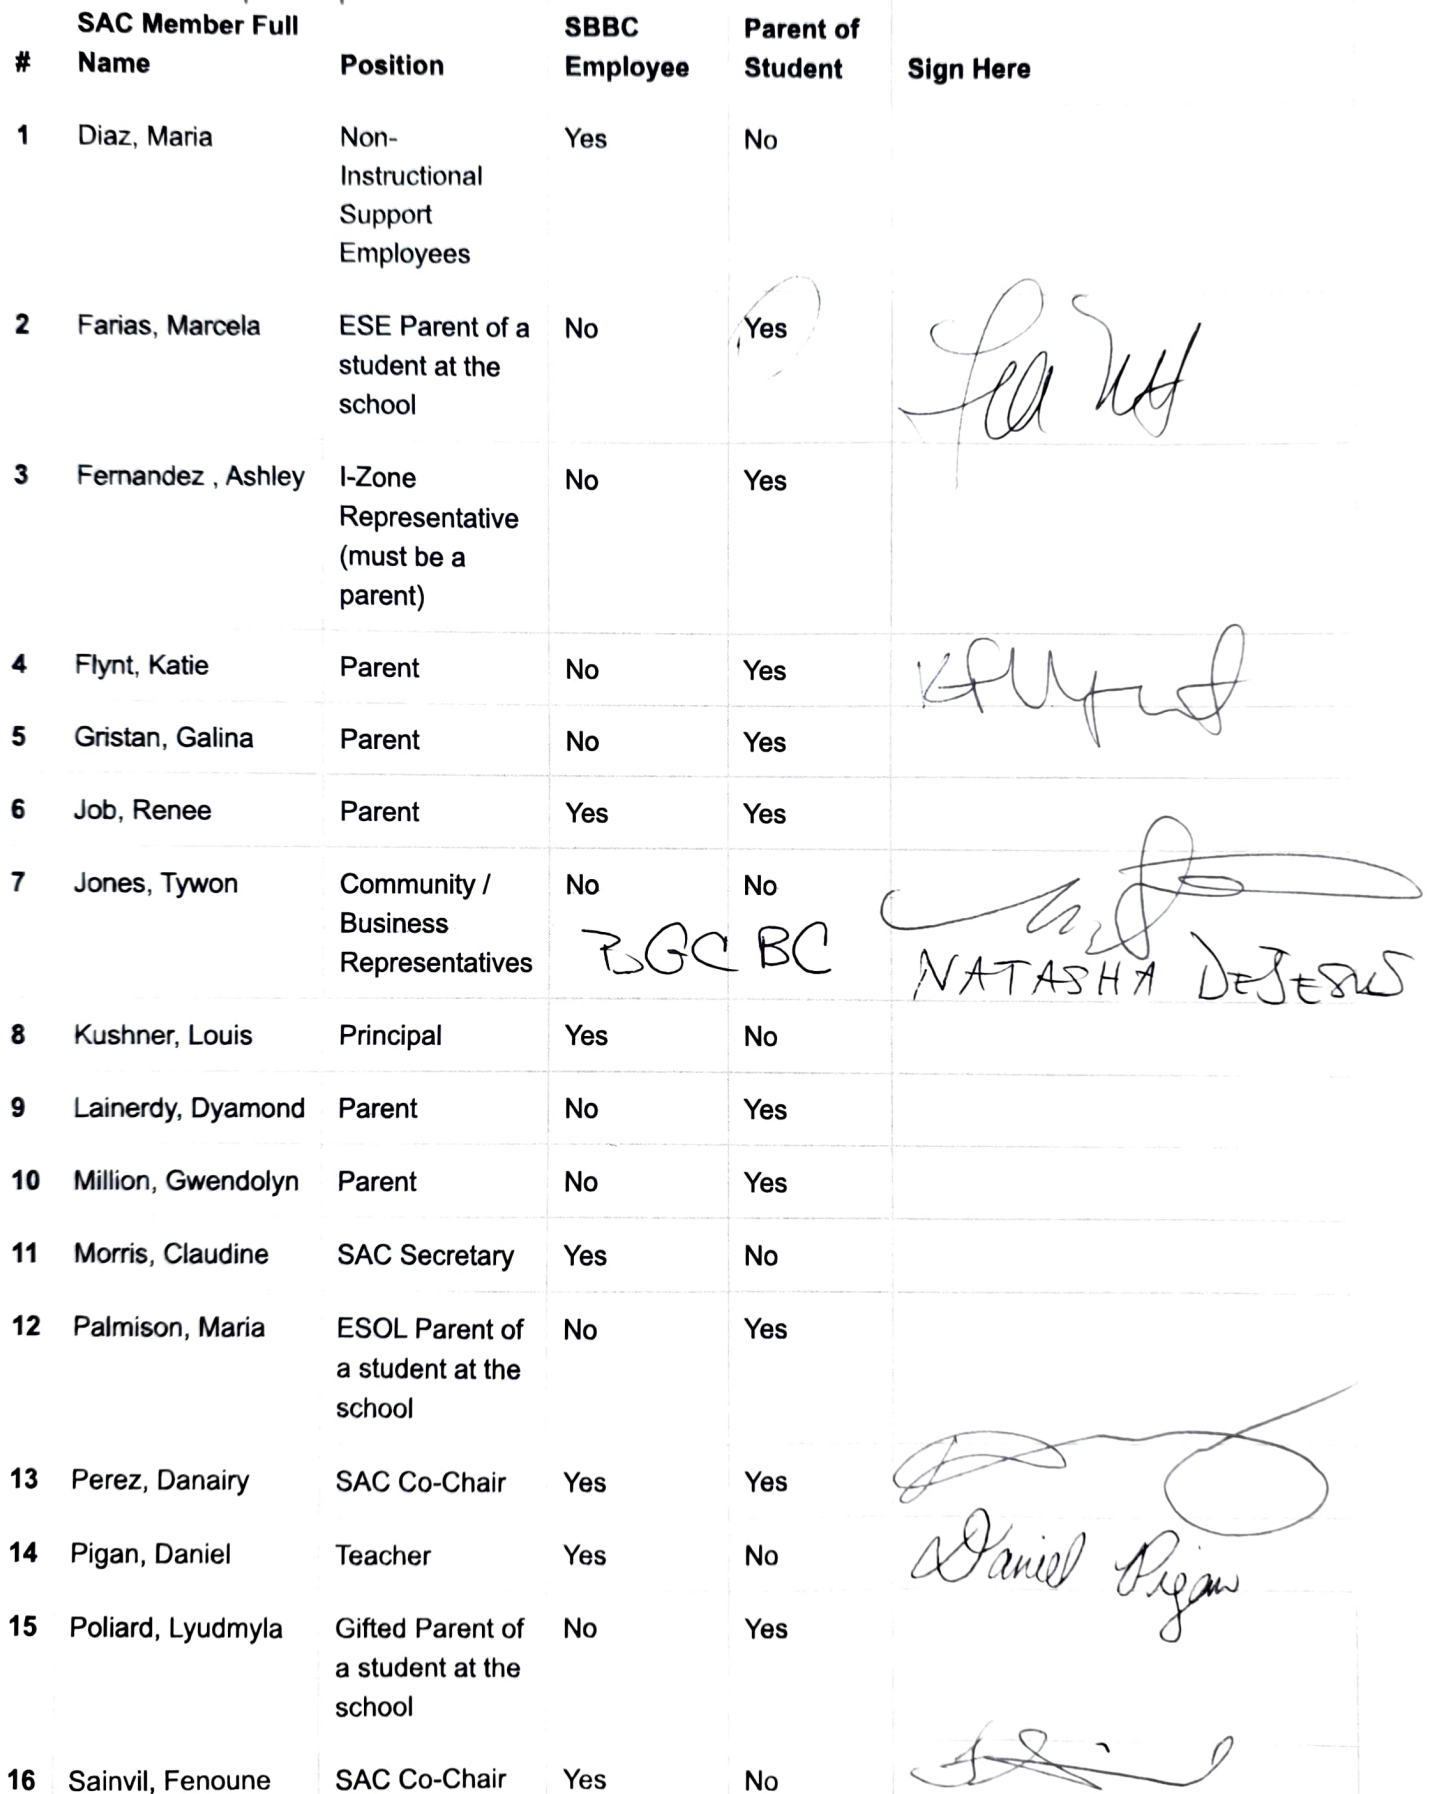 SAC Member Full Name
#
Position
SBBC Employee
Parent of Student
Sign Here
1 Diaz, Maria Non- Yes No
Instructional
Support
Employees
2 Farias, Marcela ESE Parent of a No Yes
student at the
school
3 Fernandez , Ashley I-Zone No Yes
Representative
(must be a
parent)
4 Flynt, Katie Parent No Yes
5 Gristan, Galina Parent No Yes
6 Job, Renee Parent Yes Yes
7 Jones, Tywon Community / No No
Business
Representatives BGCBC NATASHA DEJESUS
8 Kushner, Louis Principal Yes No
9 Lainerdy, Dyamond Parent No Yes
10 Million, Gwendolyn Parent No Yes
11 Morris, Claudine SAC Secretary Yes No
12 Palmison, Maria ESOL Parent of No Yes
a student at the
school
13 Perez, Danairy SAC Co-Chair Yes Yes
14 Pigan, Daniel Teacher Yes No Daniel Pigan
15 Poliard, Lyudmyla Gifted Parent of No Yes
a student at the
school
16 Sainvil, Fenoune SAC Co-Chair Yes No